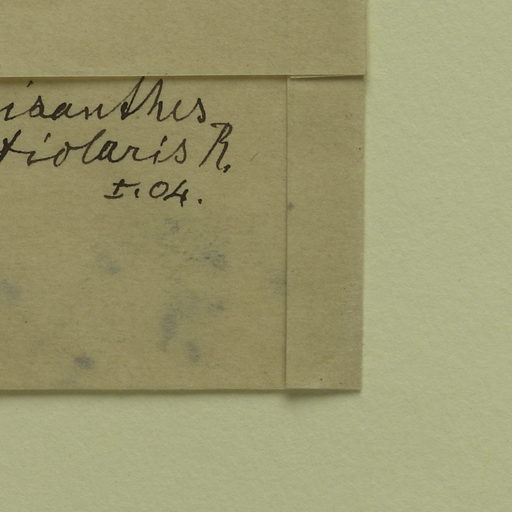 isanthes
tiolaris R.
I.04.